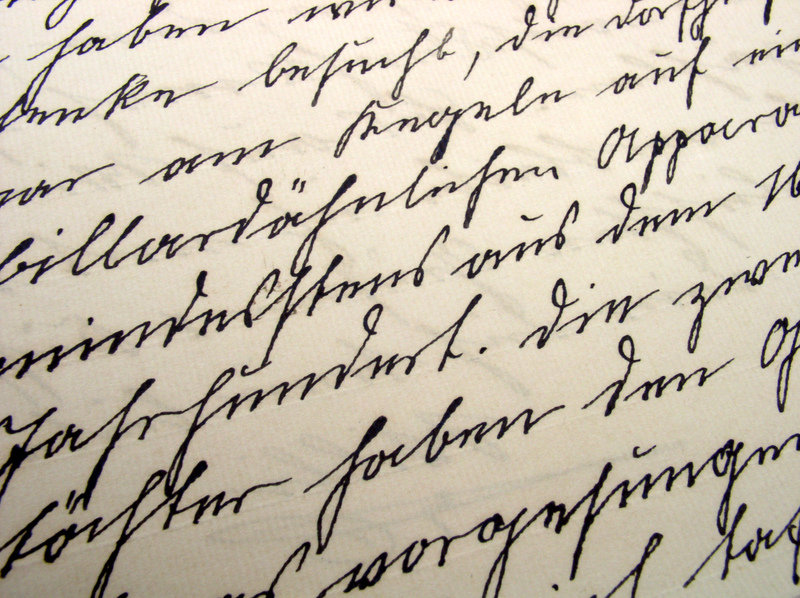 haben wir
denke besucht, die Dorfsch
war am Kegeln auf ein
billardähnlichen Appara
mindestens aus dem 16
Jahrhundert. Die zwe
töchter haben den G
vorgesungen
ich tat